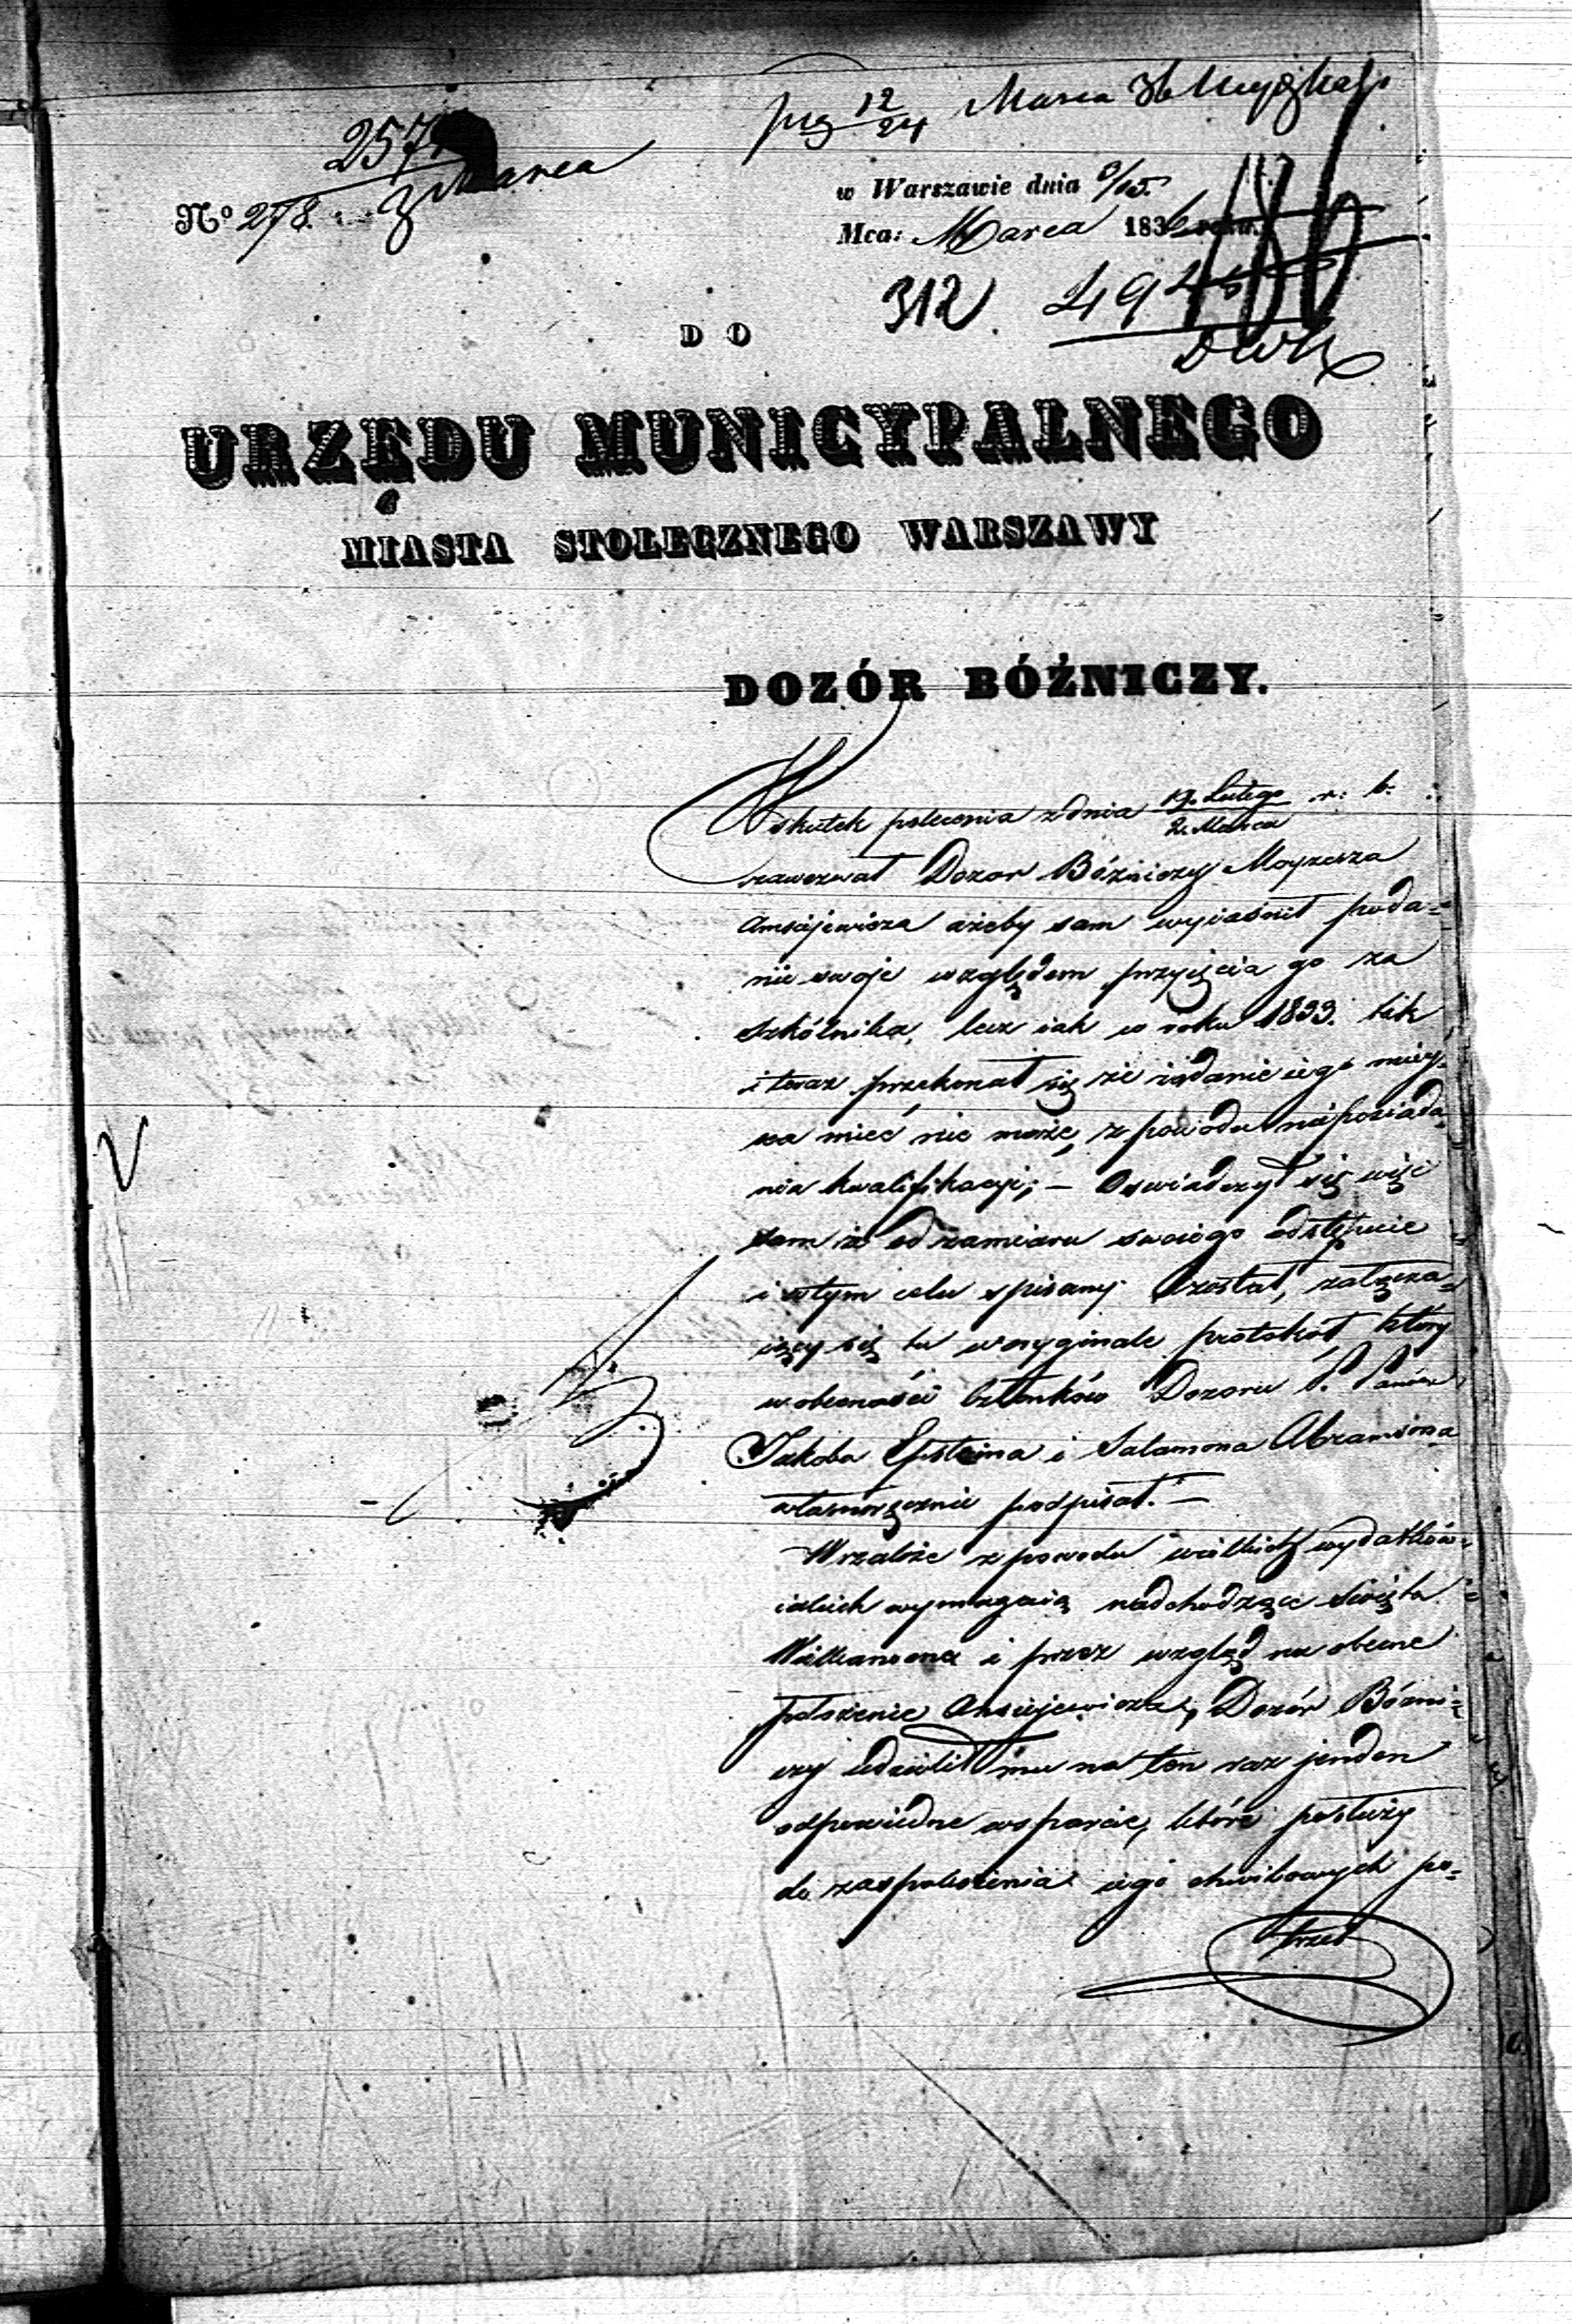 12
24 Marca
257
Marca
w Warszawie dnia
No 278.
Mca: Marca 183
312.
DO
URZĘDU MUNICYPALNEGO
MIASTA STOŁECZNEGO WARSZAWY
DOZÓR BÓŻNICZY.
Wskutek polecenia z dnia 19. Lutego r: b:
2. Marca
zawezwał Dozor Bóżniczy Moyzesza
Amszejewicza ażeby sam wyiaśnił poda=
nie swoje względem przyięcia go za
Szkólnika, lecz iak w roku 1833. tak
i teraz przekonał się że żądanie iego miey=
sca mieć nie może, z powodu nieposiada=
nia kwalifikacji; — Oswiadczył się więc
sam iż od zamiaru swoiego odstępuie
i w tym celu spisany został, załącza=
iący się tu w oryginale protokół, który
w obecności Członków Dozoru P. Panów
Jakoba Epsteina i Salamona Abramsona
własnoręcznie podpisał. —
Wszakże z powodu wielkich wydatków
iakich wymagaią nadchodzące Święta
Wielkanocne i przez wzgląd na obecne
położenie Amszejewicza, Dozór Bóżni=
czy udzielił mu na ten raz jeden
odpowiedne wsparcie, które posłuży
do zaspokoienia iego chwilowych po=
trzeb